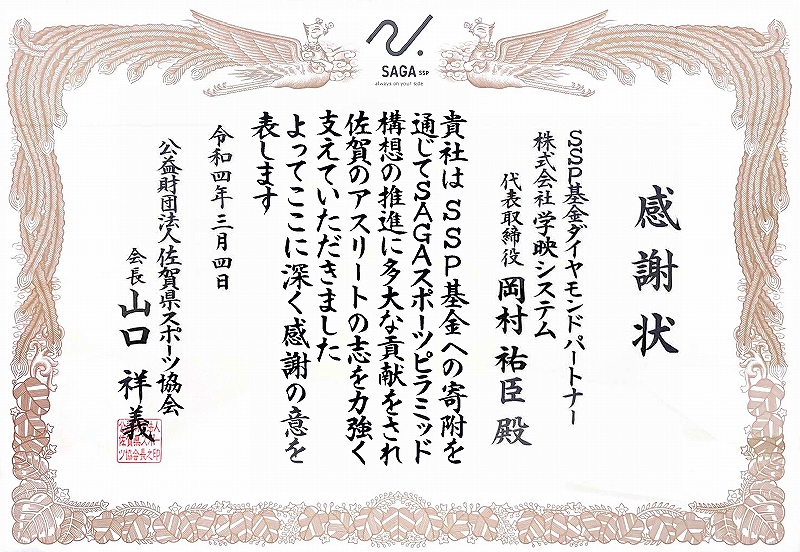 SAGA SSP
always on your side
感謝状
SSP基金ダイヤモンドパートナー
株式会社 学映システム
代表取締役 岡村 祐臣 殿
貴社はSSP基金への寄附を
通じてSAGAスポーツピラミッド
構想の推進に多大な貢献をされ
佐賀のアスリートの志を力強く
支えていただきました
よってここに深く感謝の意を
表します
令和四年三月四日
公益財団法人佐賀県スポーツ協会
会長 山口 祥義
公益財団法人
佐賀県スポー
ツ協会長之印